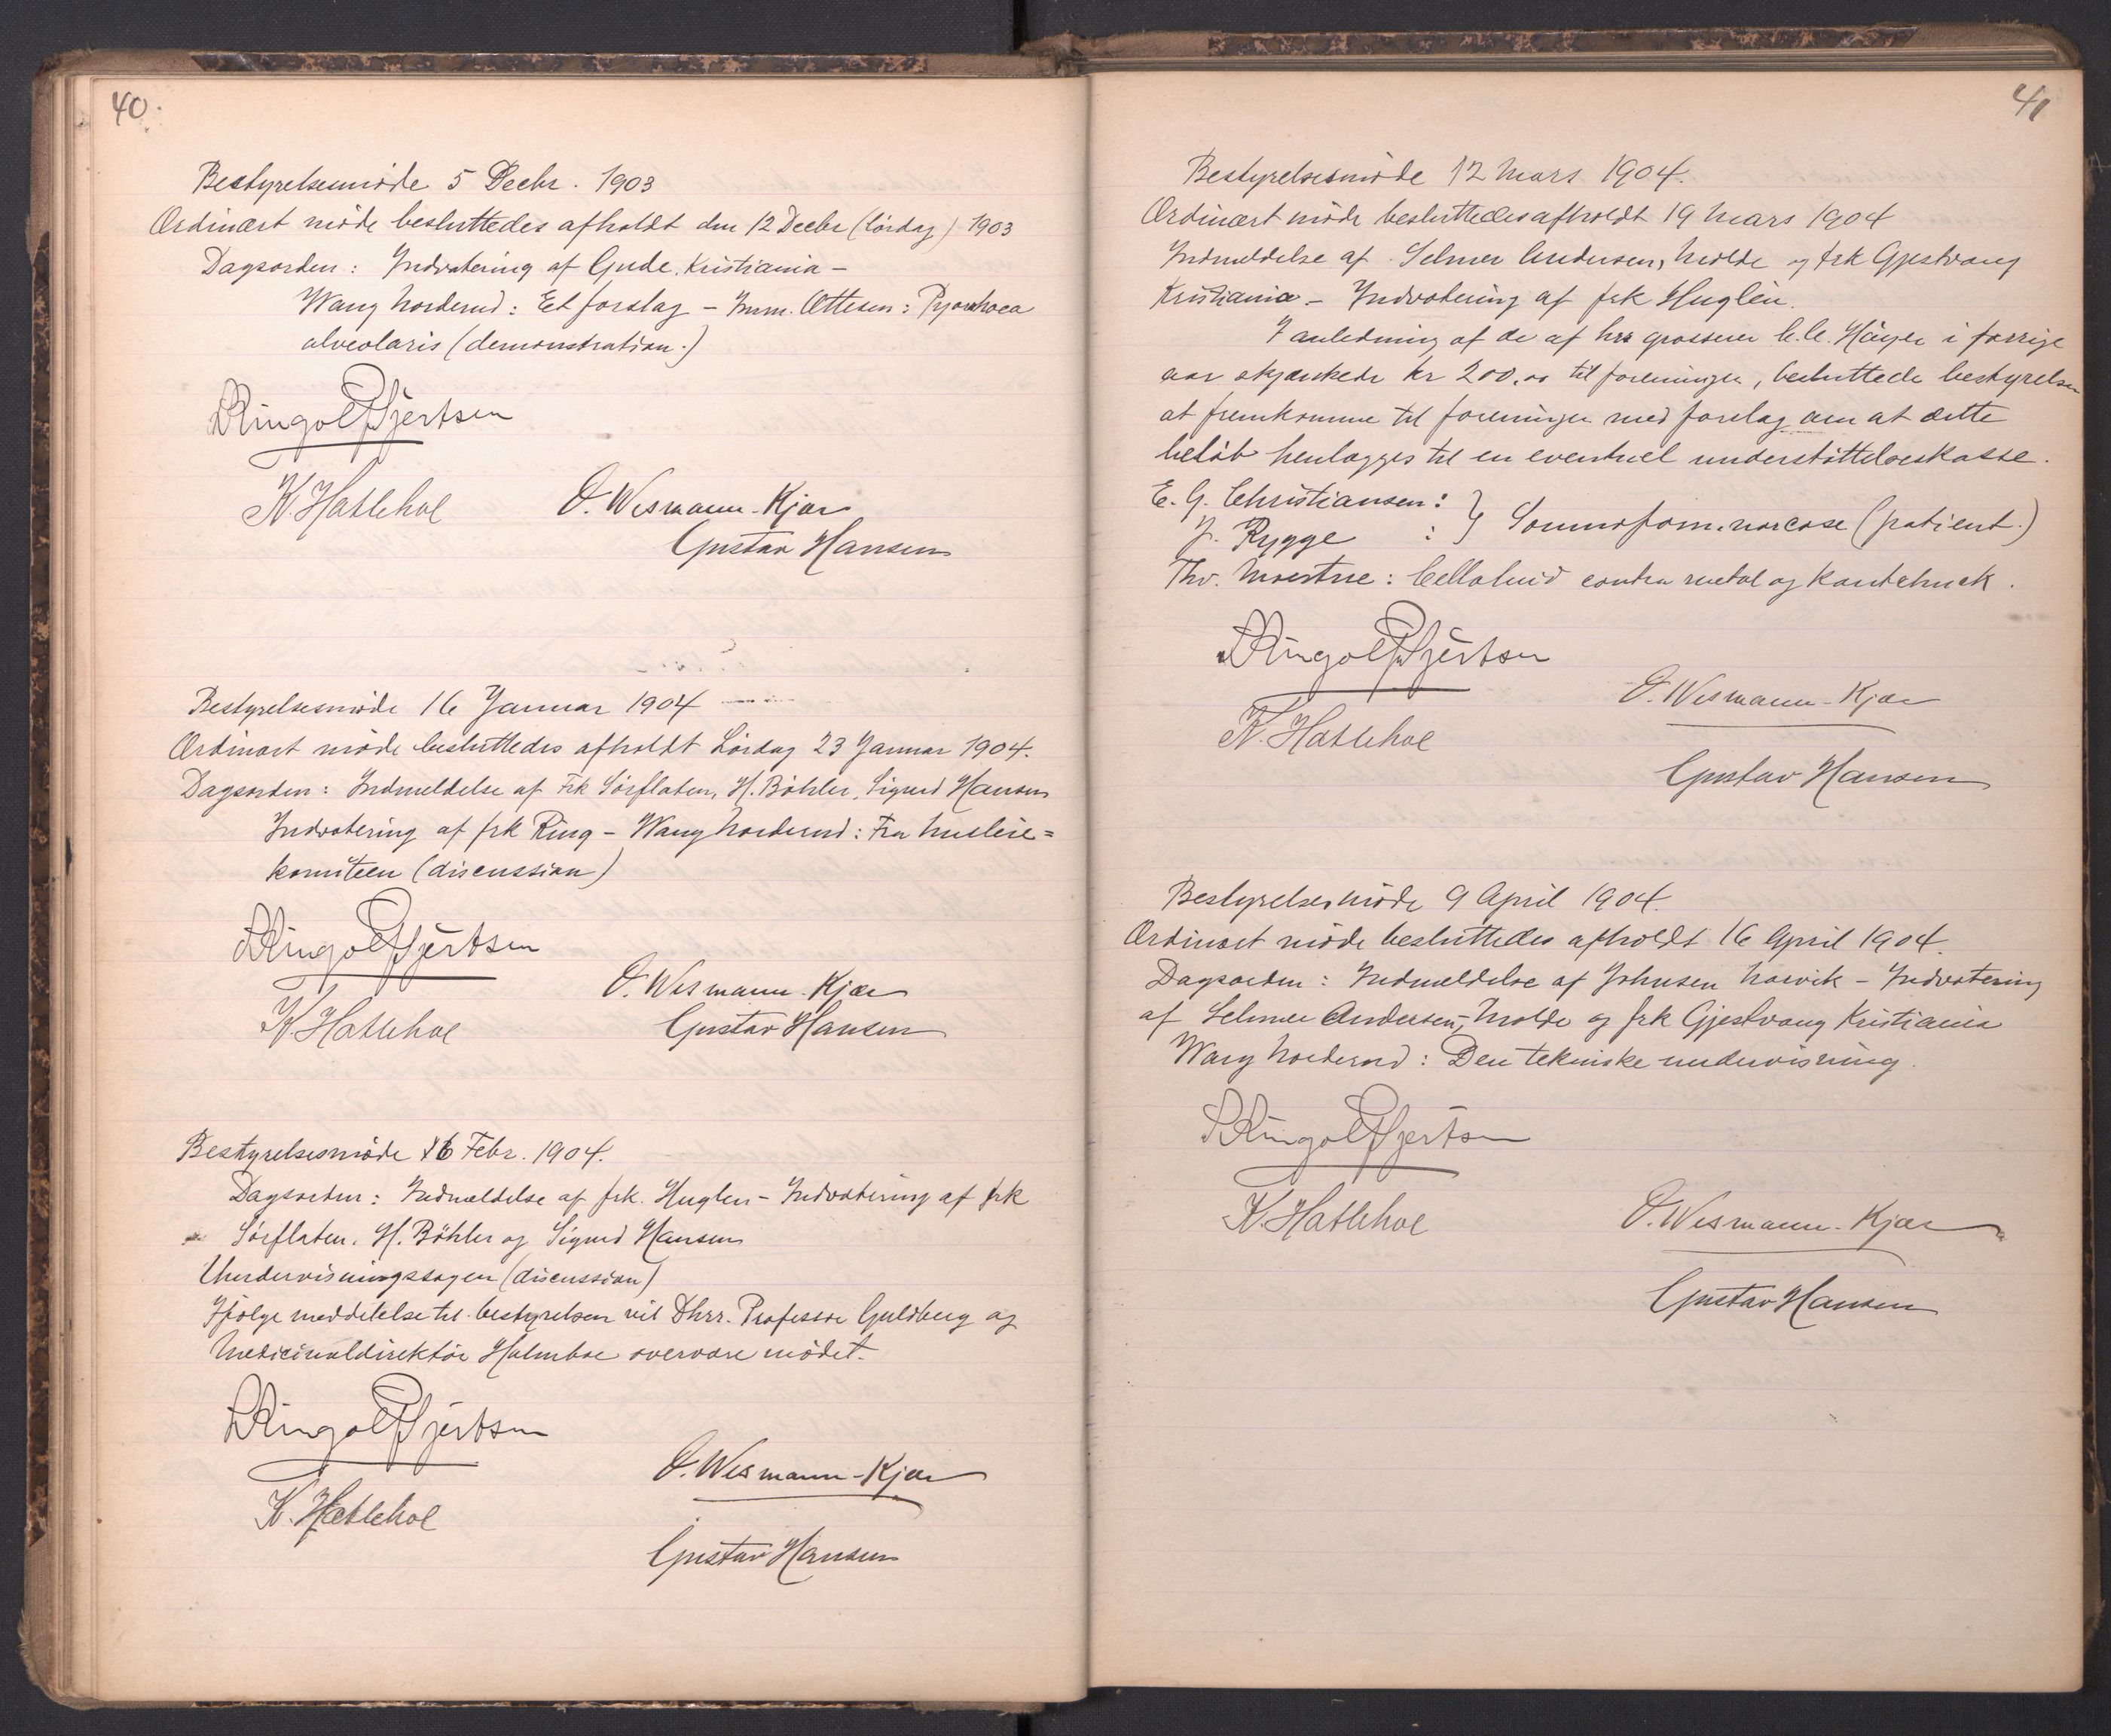 40.
Bestyrelsesmöde 5 Decbr. 1903
Ordinært möde besluttedes afholdt den 12 Decbr (lördag) 1903
Dagsorden: Indvotering af Gude, Kristiania –
Wang Norderud: Et forslag – Imm. Ottesen: Pyorrhoea
alveolaris (demonstration.)
K. Hatlehol O. Wesmann-Kjær
Gustav Hansen
Bestyrelsesmöde 16 Januar 1904
Ordinært möde besluttedes afholdt Lördag 23 Januar 1904.
Dagsorden: Indmeldelse af Frk Sörflaten, H. Böhler, Sigurd Hansen
Indvotering af frk Ring – Wang Norderud: Fra husleie=
komiteen (discussion)
O. Wesmann-Kjær
K. Hatlehol Gustav Hansen
Bestyrelsesmöde 16 Febr. 1904.
Dagsorden: Indmeldelse af frk. Huglen – Indvotering af frk
Sörflaten, H. Böhler og Sigurd Hansen
Undervisningssagen (discussion)
Ifölge meddelelse til bestyrelsen vil Dhrr. Professor Guldberg og
Medicinaldirektör Holmboe overvære mödet.
O. Wesmann-Kjær
K. Hatlehol
Gustav Hansen
41
Bestyrelsesmöde 12 Mars 1904.
Ordinært möde besluttedes afholdt 19 Mars 1904
Indmeldelse af Selmer Andersen, Molde og frk Gjestvang
Kristiania – Indvotering af frk Huglen.
I anledning af de af hrr grosserer Höyer i forrige
aar skjænkede kr 200,00 til foreningen, besluttede bestyrelsen
at fremkomme til foreningen med forslag om at dette
belöb henlægges til en eventuel understöttelseskasse.
E. G. Christiansen: }
J. Rygge : } Somnoform.narcose (patient.)
Thv. Moestue: Celluloid contra metal og kautchuck.
O. Wesmann-Kjær
K. Hatlehol
Gustav Hansen
Bestyrelsesmöde 9 April 1904.
Ordinært möde besluttedes afholdt 16 April 1904.
Dagsorden: Indmeldelse af Johnsen Narvik – Indvotering
af Selmer Andersen, Molde og frk Gjestvang Kristiania
Wang Norderud: Den tekniske undervisning.
K. Hatlehol O. Wesmann-Kjær
Gustav Hansen